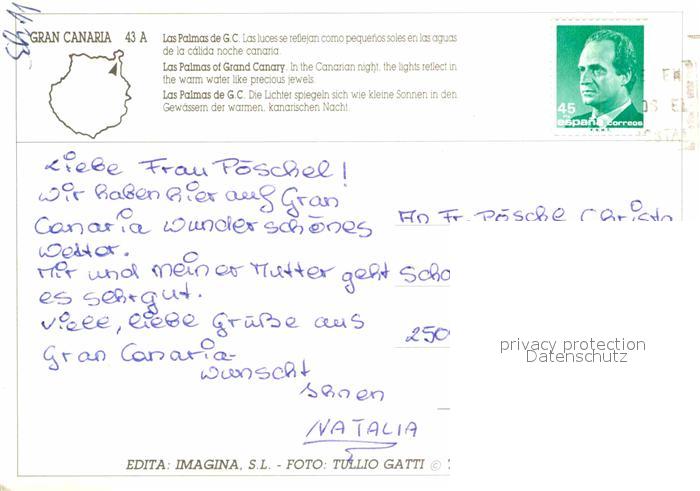 GRAN CANARIA 43 A
Las Palmas de G.C. Las luces se reflejan como pequeños soles en las aguas
de la cálida noche canaria.
Las Palmas of Grand Canary. In the Canarian night, the lights reflect in
the warm water like precious jewels.
Las Palmas de G.C. Die Lichter spiegeln sich wie kleine Sonnen in den
Gewässern der warmen, kanarischen Nacht.
45
españa correos
Liebe Frau Pöschel!
Wir haben hier auf Gran
Canaria wunderschönes
Wetter.
Mir und meiner Mutter geht
es sehr gut.
Viele, liebe Grüße aus
Gran Canaria
wünscht
Ihnen
NATALIA
An Fr. Pösche Christ
Scho
250
privacy protection
Datenschutz
EDITA: IMAGINA, S.L. - FOTO: TULLIO GATTI ©